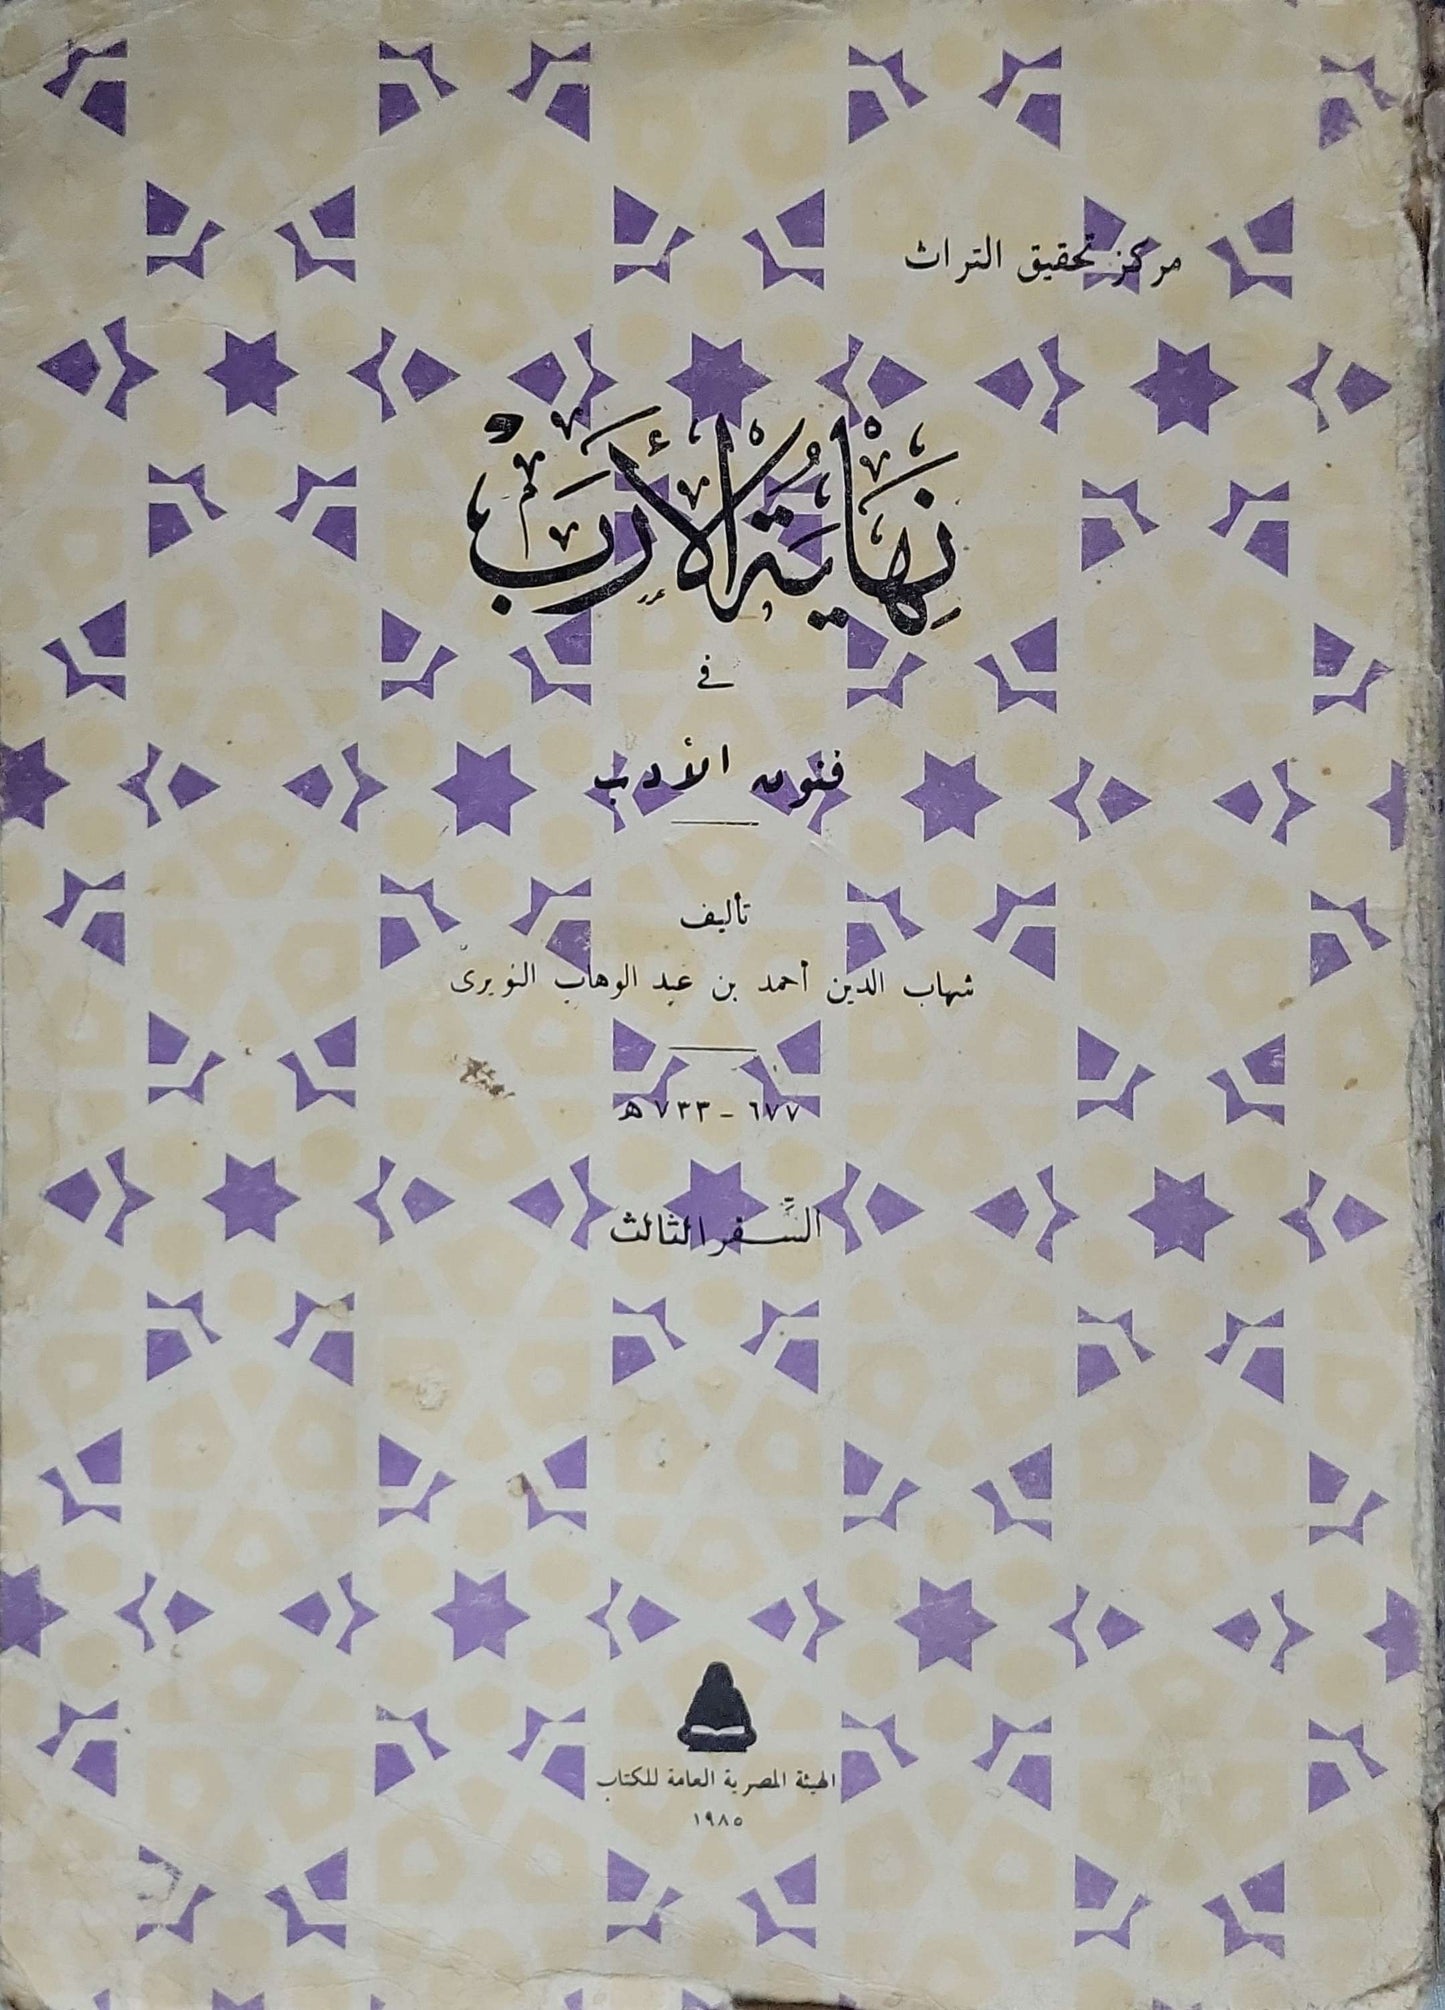 مركز تحقيق التراث
نِهَايَةُ الأَرَبْ
في
فنون الأدب
تأليف
شهاب الدين أحمد بن عبد الوهاب النويرىّ
٦٧٧ - ٧٣٣ هـ
السِّفر الثالث
الهيئة المصرية العامة للكتاب
١٩٨٥